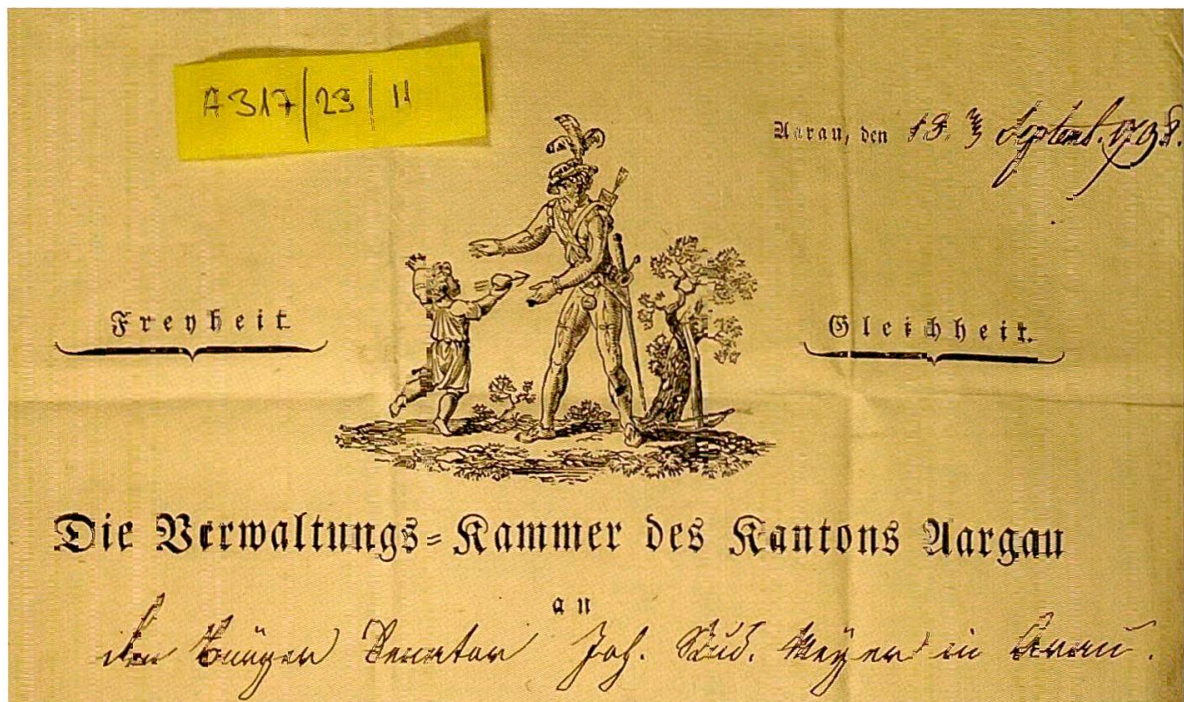 A 317/29/11
Aarau, den 13. Septemb. 1798.
Freyheit
Gleichheit.
Die Verwaltungs-Kammer des Kantons Aargau
an
den Bürger Senator Joh. Rud. Meÿer in Arau.